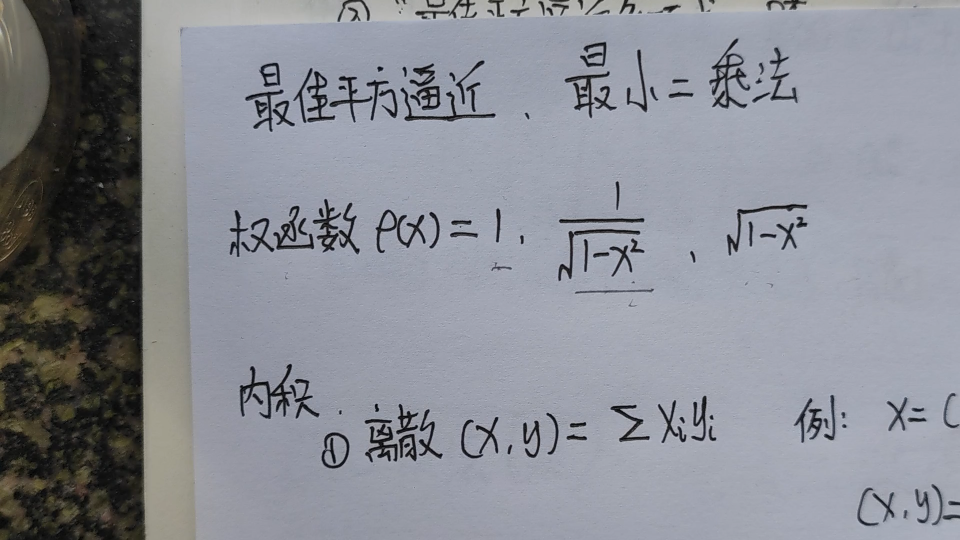 最佳平方逼近、最小二乘法
权函数 ρ(x) = 1、 1/√(1-x²) 、 √(1-x²)
内积.
① 离散 (x, y) = Σ xᵢyᵢ 例: x = (
(x, y) =